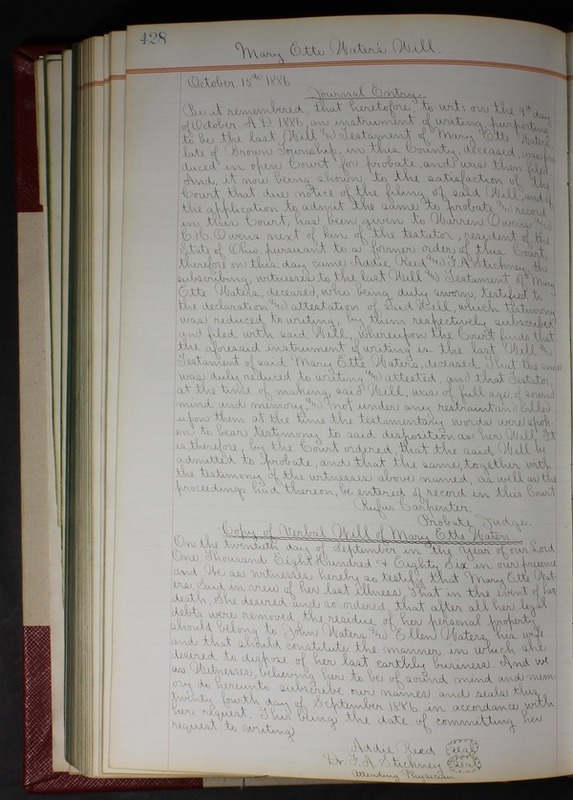 428
Mary Ette Waters Will.
October 15th 1886
Journal Entry.
Be it remembered, that heretofore, to wit: on the 9th day
of October A.D. 1886, an instrument of writing purporting
to be the last Will and Testament of Mary Ette Waters
late of Brown Township, in this County, deceased, was pro
duced in open Court for probate, and was then filed
And, it now being shown to the satisfaction of the
Court that due notice of the filing of said Will, and of
the application to admit the same to probate and record
in this Court, has been given to Warren Owens and
C.H. Owens next of kin of the testator, resident of the
State of Ohio, pursuant to a former order of this Court,
therefore on this day came Addie Reed and F.A. Stickney the
subscribing witnesses to the last Will and Testament of Mary
Ette Waters, deceased, who being duly sworn, testified to
the declaration and attestation of said Will, which testimony
was reduced to writing, by them respectively subscribed,
and filed with said Will, whereupon the Court finds that
the aforesaid instrument of writing is the last Will and
Testament of said Mary Ette Waters, deceased, That the same
was duly reduced to writing and attested, and that Testator,
at the time of making said Will, was of full age, of sound
mind and memory, and not under any restraint and called
upon them at the time the testamentary words were spok-
en to bear testimony to said desposition as her Will. It
is therefore, by the Court ordered, that the said Will be
admitted to probate, and that the same, together with
the testimony of the witnesses above named, as well as the
proceedings had thereon, be entered of record in this Court
Rufus Carpenter.
Probate Judge.
Copy of Verbal Will of Mary Ette Waters.
On the twentieth day of September in thy year of our Lord
One Thousand Eight Hundred & Eighty Six in our presence
and We as witnesses hereby so testify that Mary Ette Wat-
ers Said in view of her last illness, That in the event of her
death, She desired and so ordered, that after all her legal
debts were removed the residue of her personal property
should belong to John Waters and Ellen Waters, his wife
and that should constitute the manner in which she
desired to dispose of her last earthly business. And we
as Witnesses, believing her to be of sound mind and mem-
ory do hereunto subscribe our names and seals this
twenty fourth day of September 1886. in accordance with
her request. This being the date of committing her
request to writing
Addie Reed seal
Dr. F.A. Stickney seal
Attending Physician